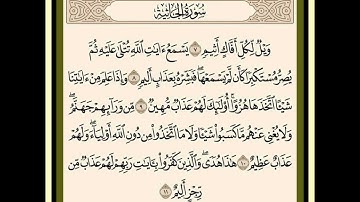 سورة الجاثية
وَيْلٌ لِّكُلِّ أَفَّاكٍ أَثِيمٍ ٧ يَسْمَعُ ءَايَٰتِ ٱللَّهِ تُتْلَىٰ عَلَيْهِ ثُمَّ
يُصِرُّ مُسْتَكْبِرًا كَأَن لَّمْ يَسْمَعْهَا ۖ فَبَشِّرْهُ بِعَذَابٍ أَلِيمٍ ٨ وَإِذَا عَلِمَ مِنْ ءَايَٰتِنَا
شَيْـًٔا ٱتَّخَذَهَا هُزُوًا ۚ أُو۟لَٰٓئِكَ لَهُمْ عَذَابٌ مُّهِينٌ ٩ مِّن وَرَآئِهِمْ جَهَنَّمُ ۖ
وَلَا يُغْنِى عَنْهُم مَّا كَسَبُوا۟ شَيْـًٔا وَلَا مَا ٱتَّخَذُوا۟ مِن دُونِ ٱللَّهِ أَوْلِيَآءَ ۖ وَلَهُمْ
عَذَابٌ عَظِيمٌ ١٠ هَٰذَا هُدًى ۖ وَٱلَّذِينَ كَفَرُوا۟ بِـَٔايَٰتِ رَبِّهِمْ لَهُمْ عَذَابٌ مِّن
رِّجْزٍ أَلِيمٌ ١١